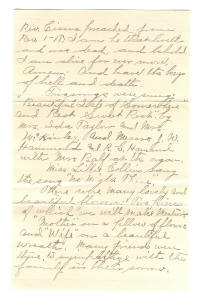 Rev. Cisma preached from
Rev 1-18 I am he that liveth
and was dead, and behold
I am alive for ever more
Amen. And have the keys
of hell and death.
Two songs were sung
Beautiful Isle of Somewhere
and Rock Sweet Rest by
Mrs. Lida Taylor and Mrs.
McKinly, and Messrs J. W.
Hammond and R. C. Hammond
with Mrs. Ralf at the organ.
Miss Lillie Collie sang
the song
There were many lovely and
beautiful flowers. Two pieces
of which we will make mention
"Mother" on a pillow of flowers
and "Wife" on a beautiful
wreath. Many friends were
there to sympathize with the
family in their sorrow.